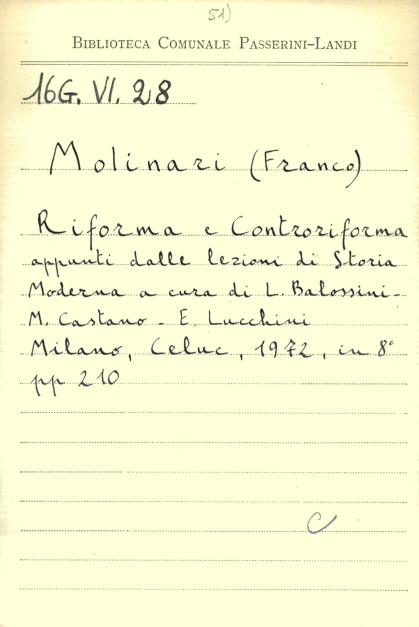 51)
BIBLIOTECA COMUNALE PASSERINI-LANDI
16G. VI. 28
Molinari (Franco)
Riforma e Controriforma
appunti dalle lezioni di Storia
Moderna a cura di L. Balossini-
M. Castano - E. Lucchini
Milano, Celuc, 1972, in 8°
pp 210
C